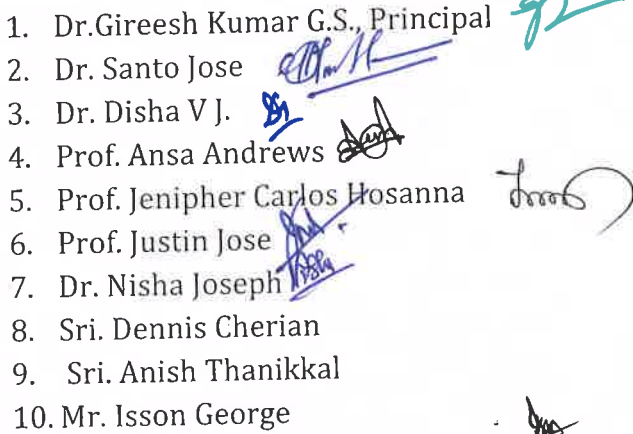 1. Dr.Gireesh Kumar G.S., Principal
2. Dr. Santo Jose
3. Dr. Disha V J.
4. Prof. Ansa Andrews
5. Prof. Jenipher Carlos Hosanna
6. Prof. Justin Jose
7. Dr. Nisha Joseph
8. Sri. Dennis Cherian
9. Sri. Anish Thanikkal
10. Mr. Isson George